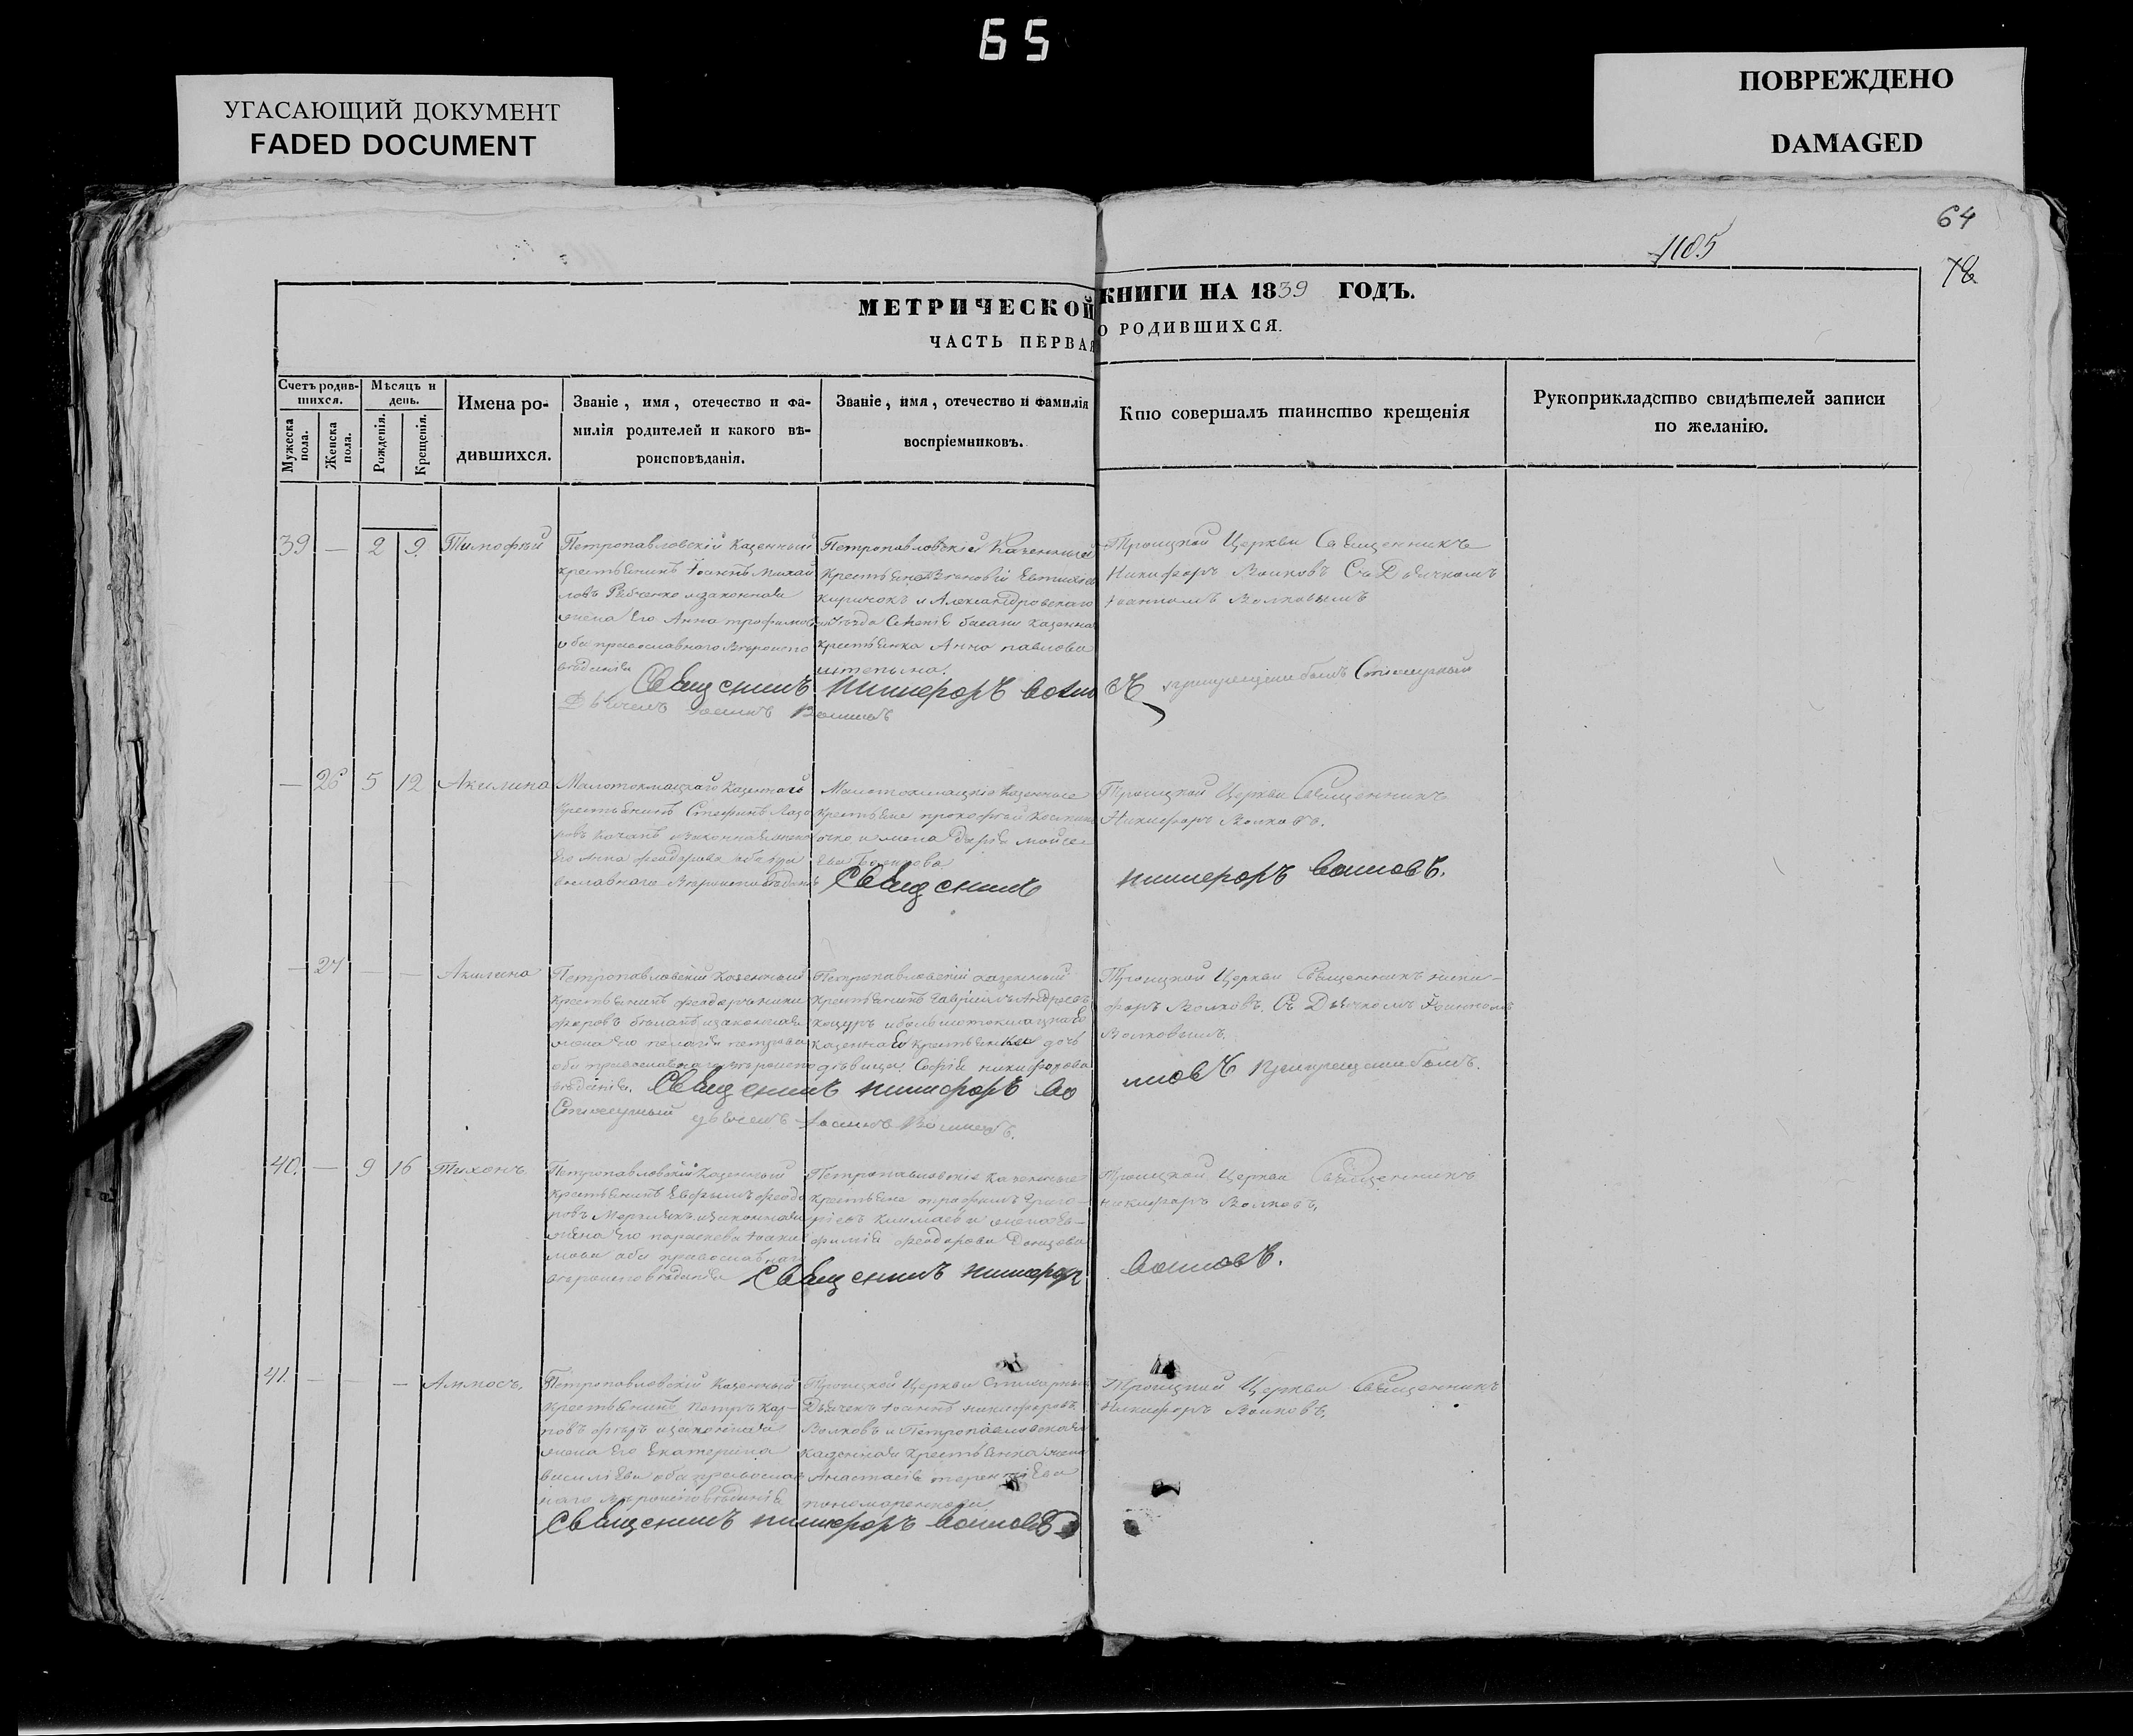 65
УГАСАЮЩИЙ ДОКУМЕНТ
FADED DOCUMENT
ПОВРЕЖДЕНО
DAMAGED
64
1185
78
МЕТРИЧЕСКОЙ КНИГИ НА 1839 ГОДЪ.
ЧАСТЬ ПЕРВАЯ О РОДИВШИХСЯ.
Счетъ родив-
шихся.
Мужеска
пола.
Женска
пола.
Мѣсяцъ и
день.
Рожденія.
Крещенія.
Имена ро-
дившихся.
Званіе, имя, отечество и фа-
милія родителей и какого вѣ-
роисповѣданія.
Званіе, имя, отечество и фамилія
воспріемниковъ.
Кто совершалъ таинство крещенія
Рукоприкладство свидѣтелей записи
по желанію.
39 — 2 9 Тимофѣй
Петропавловскій Казенный
крестьянинъ Іоаннъ Михай
ловъ Рябченко и законная
жена Его Анна трофимова
оба православнаго вѣроиспо
вѣданія
Петропавловскіе Казенный
Крестьянинъ
и Александровскаго
уѣзда
крестьянка Анна павлова
Троицкой Церкви Священникъ
Никифоръ Волковъ Съ Дьячкомъ
Іоанномъ Волковымъ
Священникъ Никифоръ Волковъ при крещеніи былъ Стихарный
Дьячекъ Іоаннъ Волковъ
— 26 5 12 Акилина
Казенный
крестьянинъ Стефанъ Лаза
ровъ и законная жена
Его Анна феодорова оба пра
вославнаго вѣроисповѣданія
Казенные
крестьяне прокофій
и жена Дарія мойсе
ева
Троицкой Церкви Священникъ
Никифоръ Волковъ.
Священникъ Никифоръ Волковъ.
— 27 — — Акилина
Петропавловскій Казенный
крестьянинъ феодоръ ники
форовъ и законная
жена Его пелагія петрова
оба православнаго вѣроиспо
вѣданія.
Петропавловскій казенный
крестьянинъ Гавріилъ Андреевъ
кацуръ и большетокмацкаго
казеннаго крестьянина дочь
дѣвица Софія никифорова
Троицкой Церкви Священникъ ники-
форъ Волковъ. Съ Дьячкомъ Іоанномъ
Волковымъ.
Священникъ Никифоръ Волковъ при крещеніи былъ.
Стихарный дьячекъ Іоаннъ Волковъ.
40. — 9 16 Тихонъ
Петропавловскій Казенный
крестьянинъ Евфимъ феодо
ровъ и законная
жена Его параскева Іоаки
мова оба православнаго
вѣроисповѣданія
Петропавловскіе казенные
крестьяне трофимъ Григо-
ріевъ и жена Ев-
фимія феодорова Донцова
Троицкой Церкви Священникъ
никифоръ Волковъ.
Священникъ Никифоръ Волковъ.
41. — — — Аммосъ.
Петропавловскій Казенный
крестьянинъ Петръ Кар-
повъ и законная
жена Его Екатерина
василіева оба православ
наго вѣроисповѣданія
Троицкой Церкви Стихарный
Дьячекъ Іоаннъ никифоровъ
Волковъ и Петропавловская
казенная крестьянка жена
Анастасія терентіева
пономаренкова
Троицкой Церкви Священникъ
Никифоръ Волковъ.
Священникъ Никифоръ Волковъ